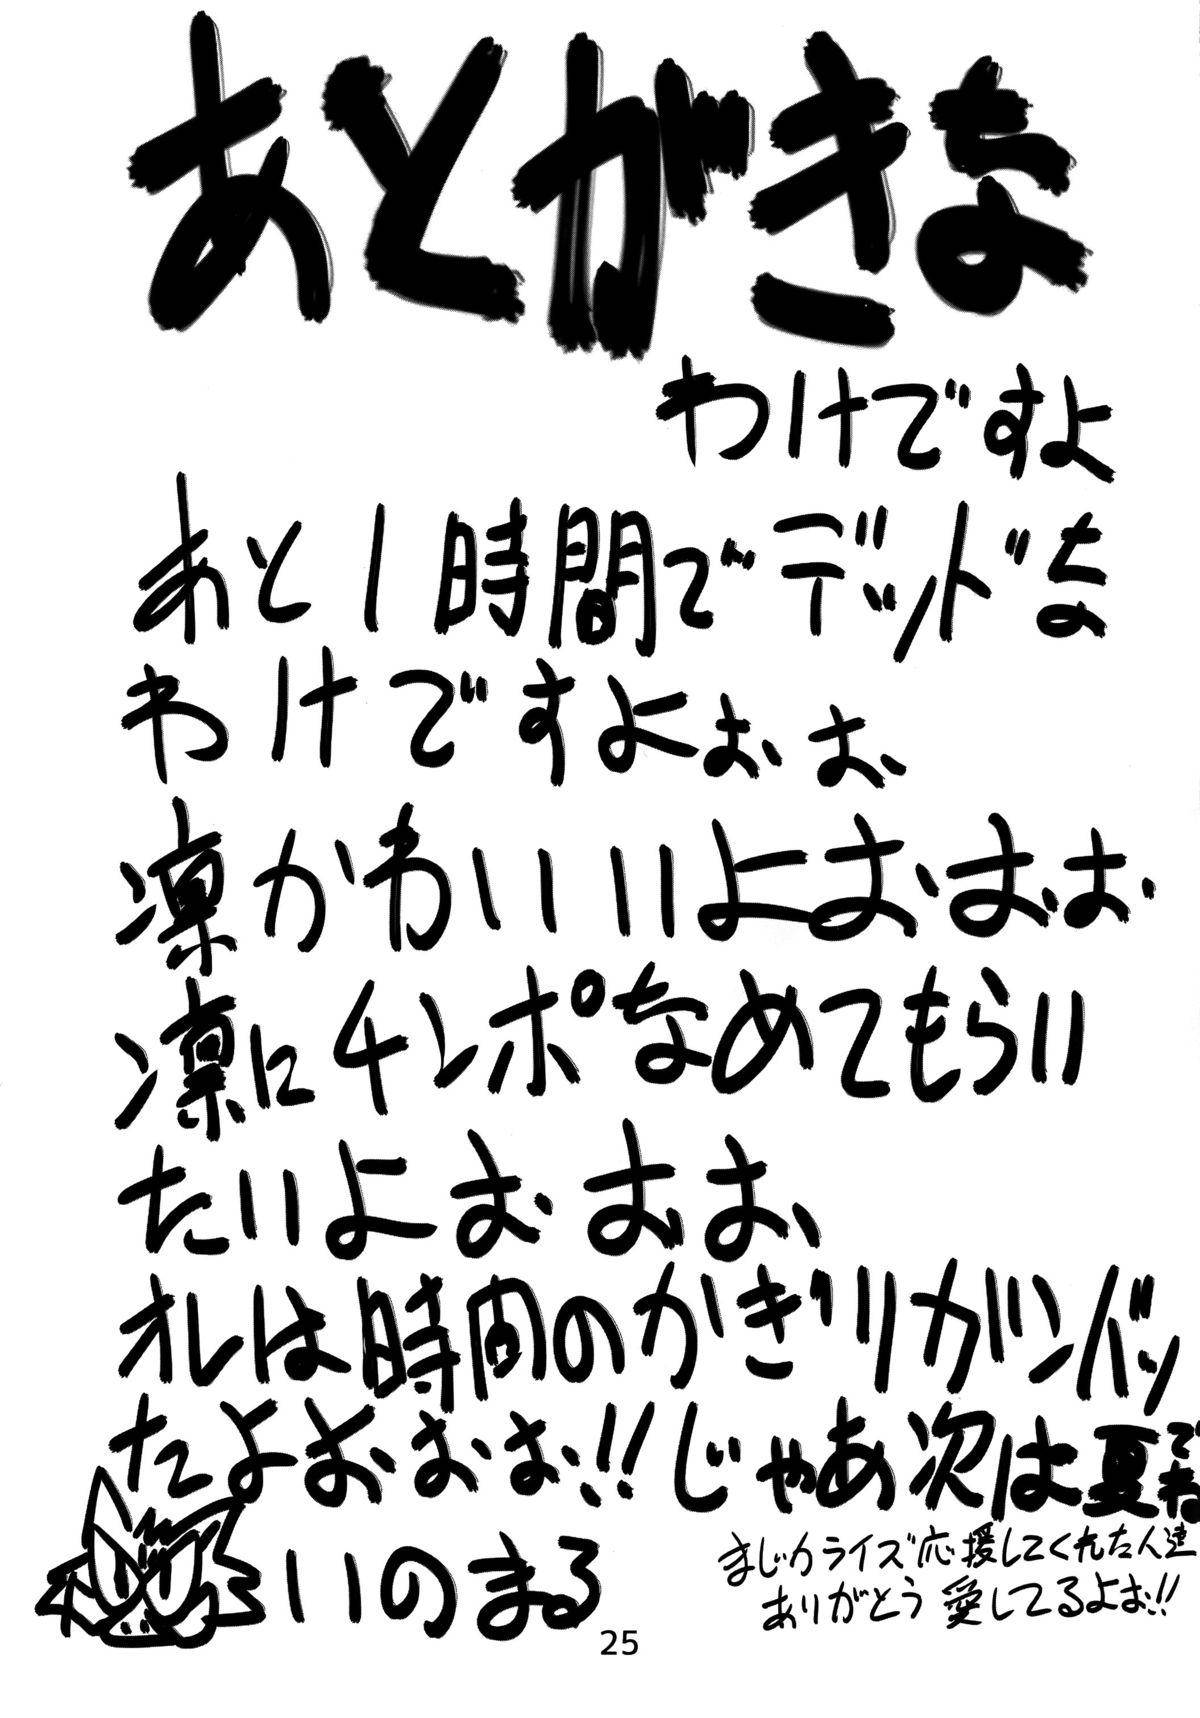 あとがきな
わけですよ
あと1時間でデッドな
わけですよぉぉ
凛かわいいよおおぉ
凛にチンポなめてもらい
たいよぉおお、
オレは時間のかぎりガンバッ
たよおぉぉ!!じゃあ次は夏でね
いのまる
まじカライズ応援してくれた人達
ありがとう愛してるよぉ!!
25